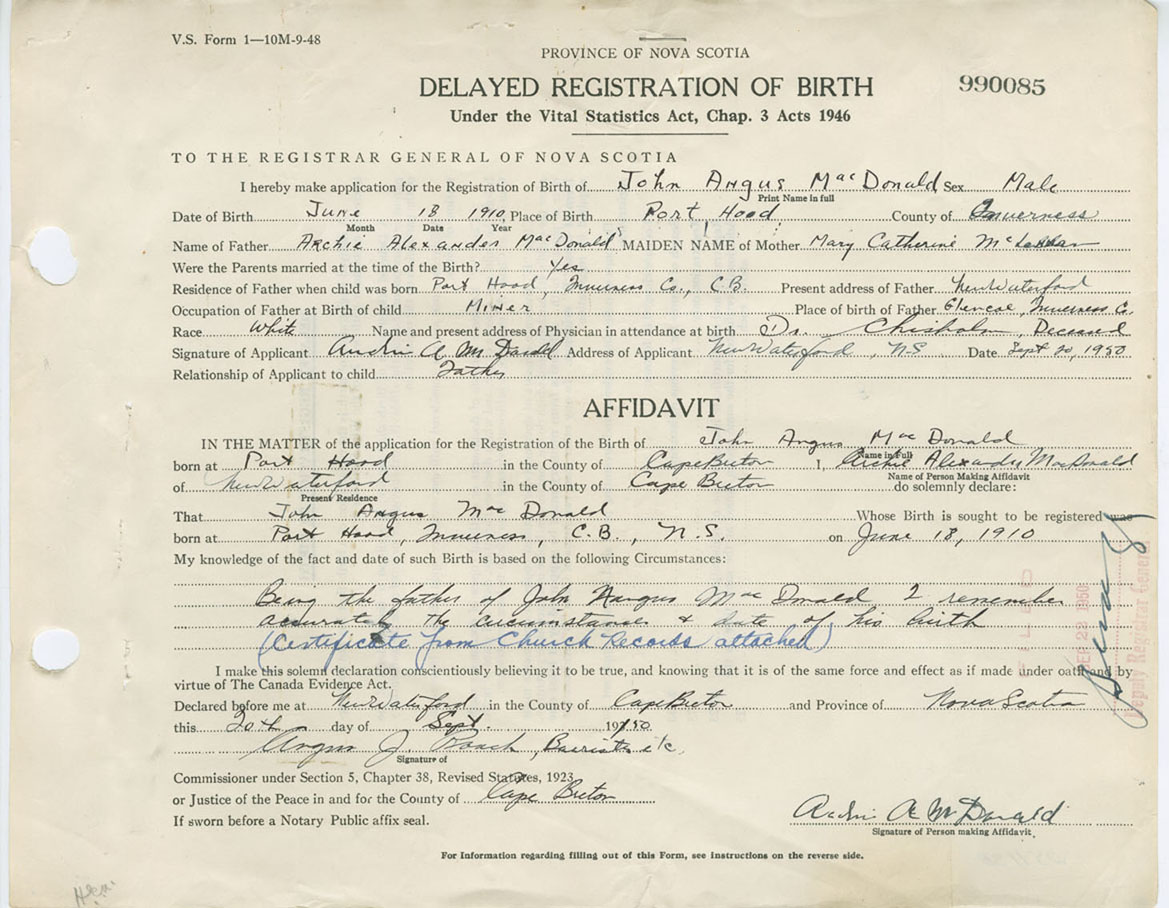 V.S. Form 1—10M-9-48
PROVINCE OF NOVA SCOTIA
DELAYED REGISTRATION OF BIRTH
990085
Under the Vital Statistics Act, Chap. 3 Acts 1946
TO THE REGISTRAR GENERAL OF NOVA SCOTIA
I hereby make application for the Registration of Birth of John Angus MacDonald Sex Male
Print Name in full
Date of Birth June 18 1910, Place of Birth Port Hood County of Inverness
Month Date Year
Name of Father Archie Alexander MacDonald MAIDEN NAME of Mother Mary Catherine McLellan
Were the Parents married at the time of the Birth? Yes
Residence of Father when child was born Port Hood, Inverness Co., C.B. Present address of Father New Waterford
Occupation of Father at Birth of child Miner Place of birth of Father Glencoe, Inverness C.
Race White Name and present address of Physician in attendance at birth Dr. Chisholm, Deceased
Signature of Applicant Archie A. McDonald Address of Applicant New Waterford, N.S Date Sept 20, 1950
Relationship of Applicant to child Father
AFFIDAVIT
IN THE MATTER of the application for the Registration of the Birth of John Angus MacDonald
Name in Full
born at Port Hood in the County of Cape Breton I, Archie Alexander MacDonald
Name of Person Making Affidavit
of New Waterford in the County of Cape Breton do solemnly declare:
Present Residence
That John Angus MacDonald Whose Birth is sought to be registered was
born at Port Hood, Inverness, C.B., N.S. on June 18, 1910
My knowledge of the fact and date of such Birth is based on the following Circumstances:
Being the father of John Hangus MacDonald I remember
accurately the circumstances & date of his birth
(Certificate from Church Records attached)
I make this solemn declaration conscientiously believing it to be true, and knowing that it is of the same force and effect as if made under oath and by
virtue of The Canada Evidence Act.
Declared before me at New Waterford in the County of Cape Breton and Province of Nova Scotia
this 20th day of Sept. 1950
Angus J. Roach, Barrister etc,
Signature of
Commissioner under Section 5, Chapter 38, Revised Statutes, 1923
or Justice of the Peace in and for the County of Cape Breton
If sworn before a Notary Public affix seal.
Archie A McDonald
Signature of Person making Affidavit,
For Information regarding filling out of this Form, see instructions on the reverse side.
FILED
SEP 22 1950
Deputy Registrar General